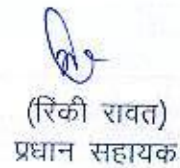 (रिंकी रावत)
प्रधान सहायक